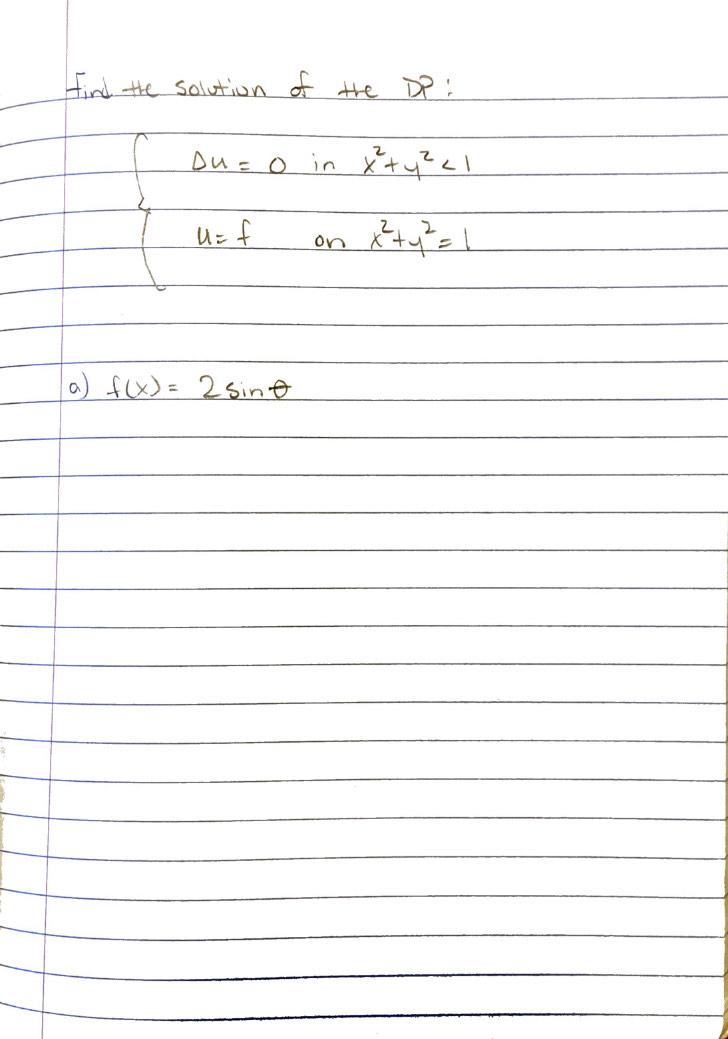 Find the solution of the DP:
Δu = 0 in x²+y² < 1
u = f on x²+y² = 1
a) f(x) = 2 sin θ